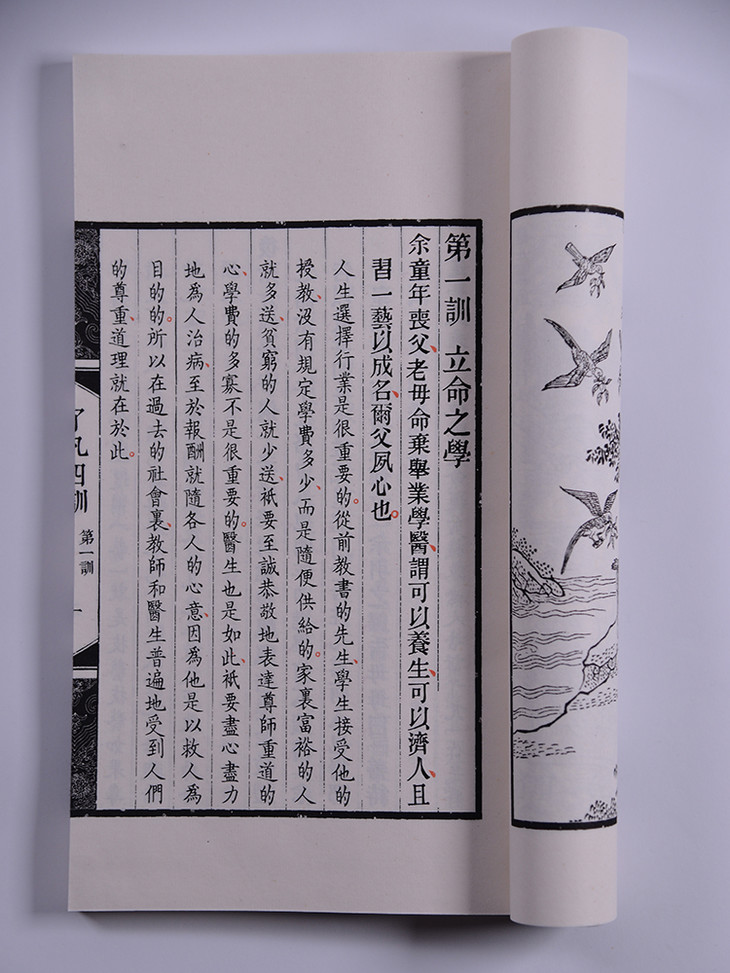 第一訓 立命之學
余童年喪父、老母命棄舉業學醫、謂可以養生、可以濟人、且
習一藝以成名、爾父夙心也。
人生選擇行業是很重要的。從前教書的先生、學生接受他的
授教、沒有規定學費多少、而是隨便供給的。家裏富裕的人
就多送、貧窮的人就少送、衹要至誠恭敬地表達尊師重道的
心、學費的多寡不是很重要的。醫生也是如此、衹要盡心盡力
地為人治病、至於報酬就隨各人的心意、因為他是以救人為
目的的。所以在過去的社會裏、教師和醫生普遍地受到人們
的尊重、道理就在於此。
了凡四訓
第一訓
一